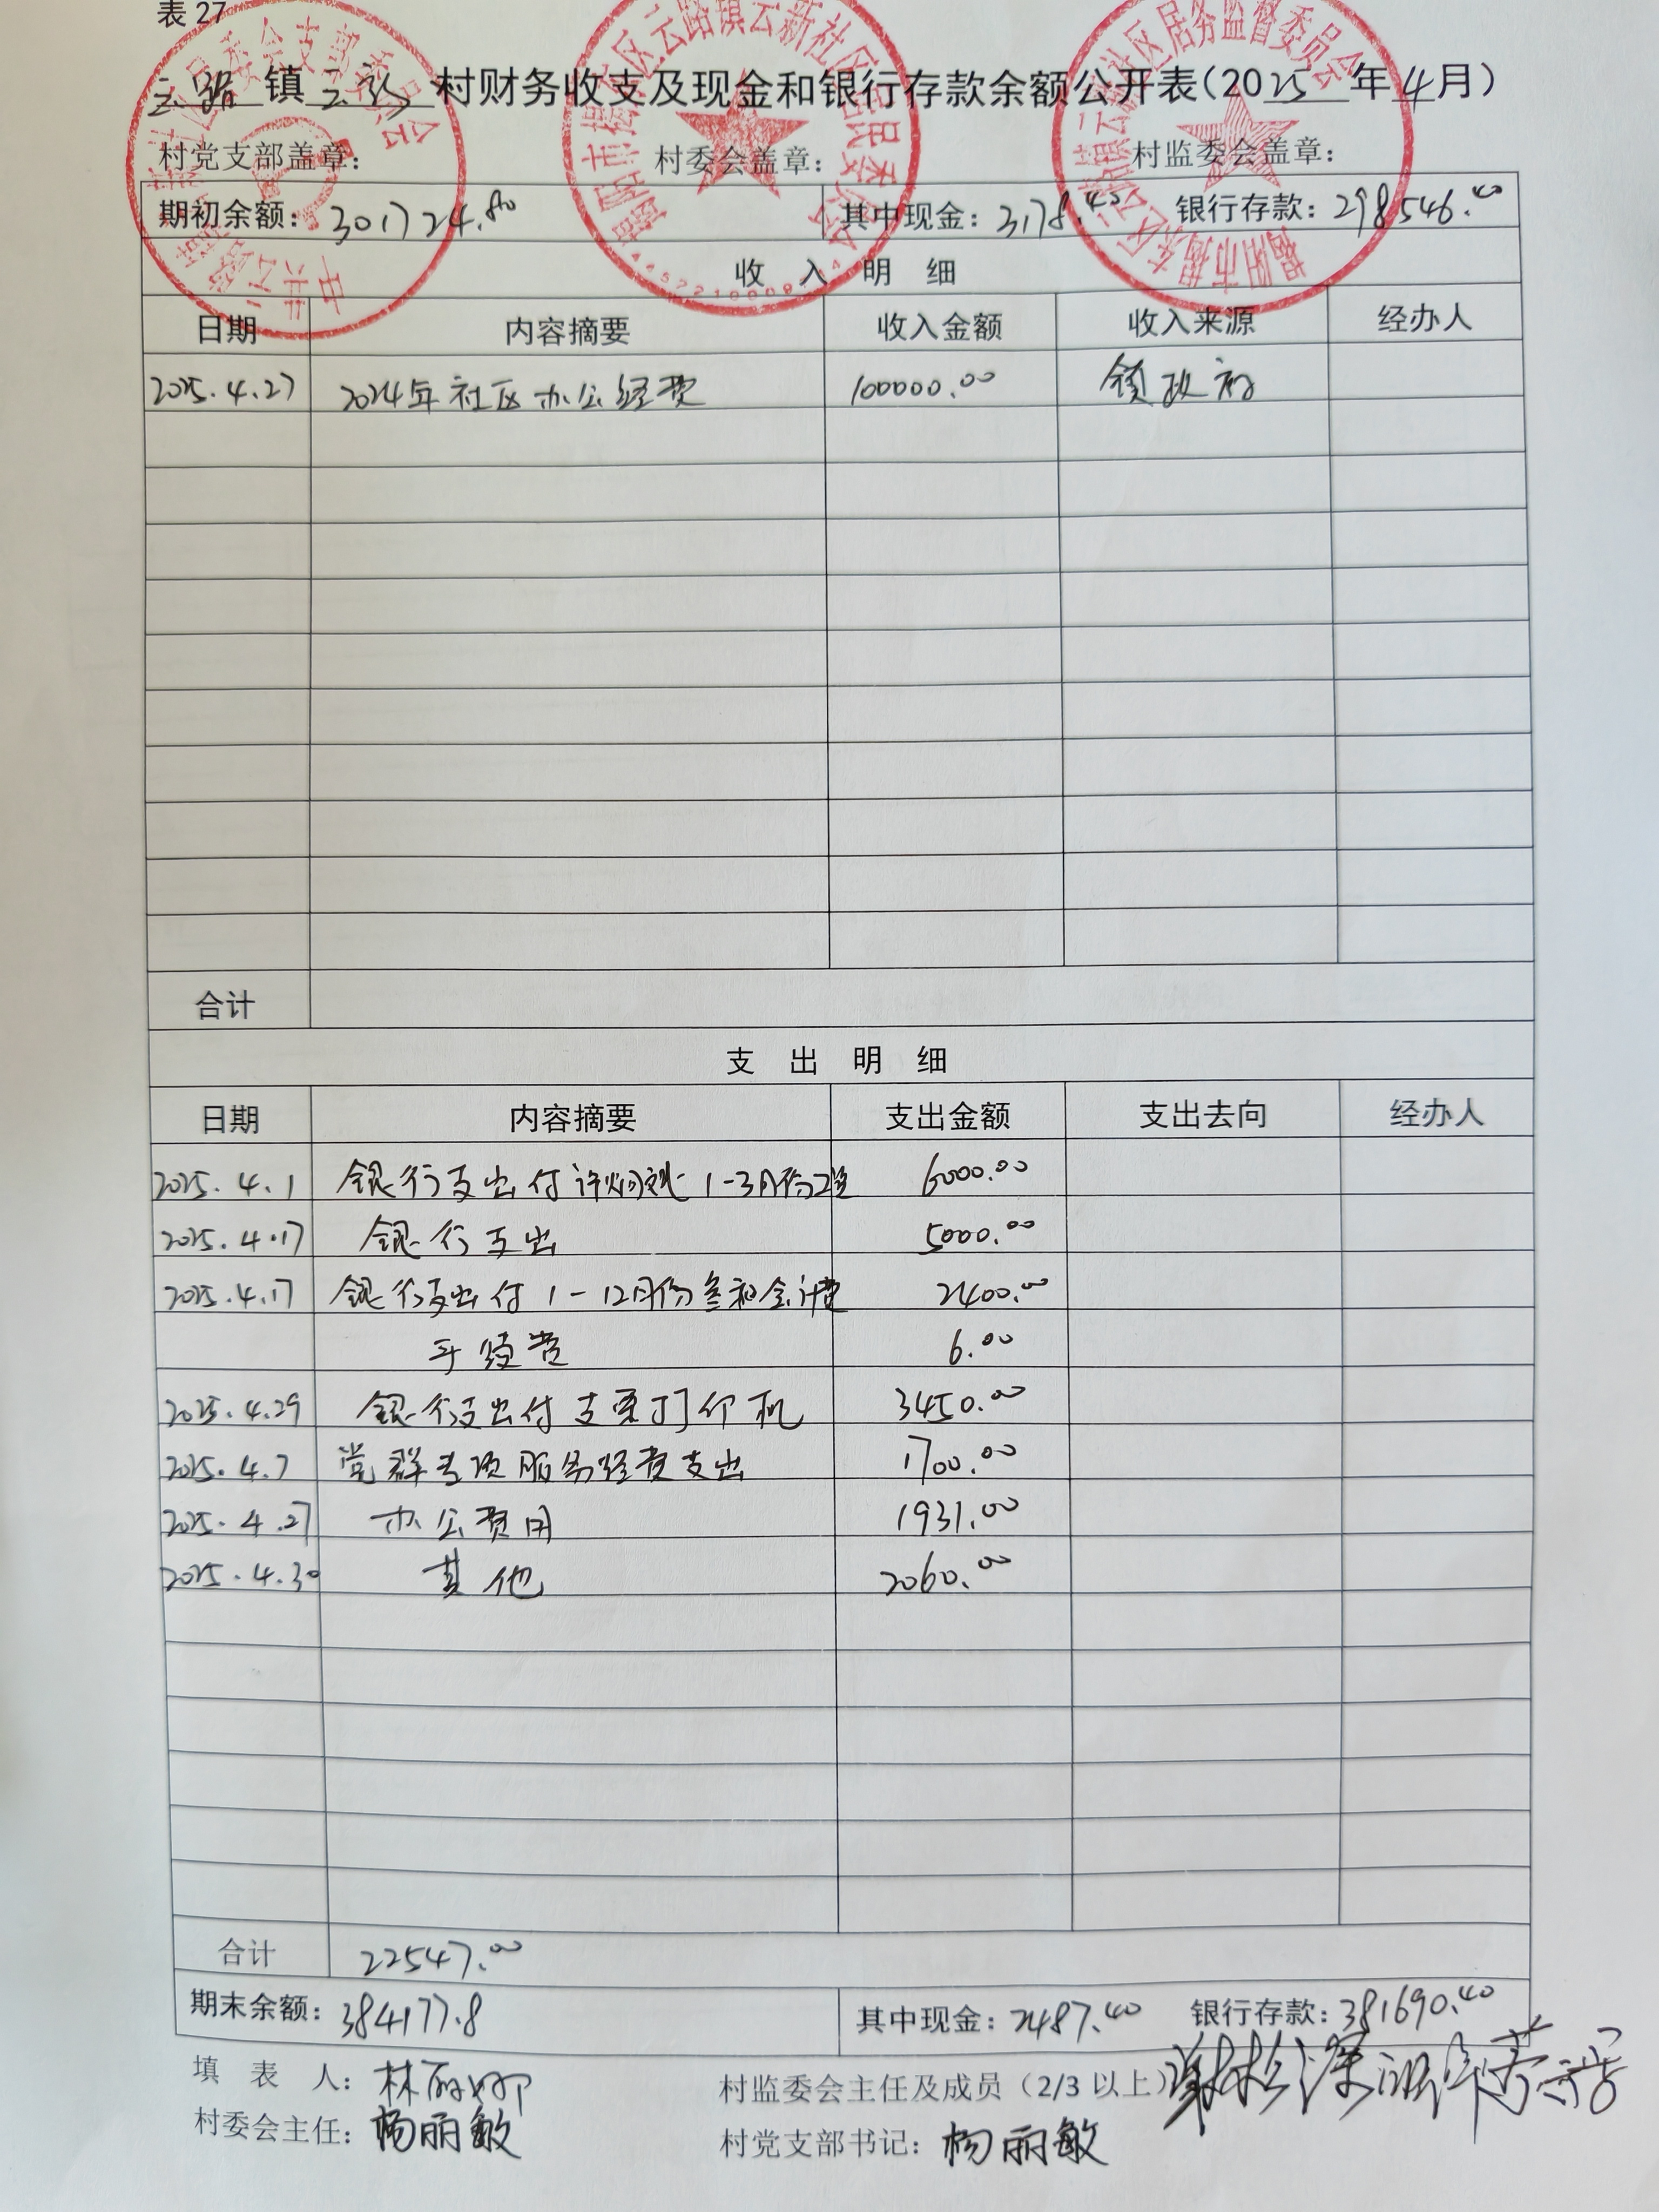 表 27
云路 镇 云新 村财务收支及现金和银行存款余额公开表(2025 年 4 月)
村党支部盖章: 村委会盖章: 村监委会盖章:
期初余额: 301724.80 其中现金: 3178.40 银行存款: 298546.40
收 入 明 细
日期 内容摘要 收入金额 收入来源 经办人
2025.4.27 2024年社区办公经费 100000.00 镇政府
合计
支 出 明 细
日期 内容摘要 支出金额 支出去向 经办人
2025.4.1 银行支出付许 1-3月份工资 6000.00
2025.4.17 银行支出 5000.00
2025.4.17 银行支出付 1-12月份 会计费 2400.00
手续费 6.00
2025.4.29 银行支出付支票打印机 3450.00
2025.4.7 党群专项服务经费支出 1700.00
2025.4.27 办公费用 1931.00
2025.4.30 其他 2060.00
合计 22547.00
期末余额: 384177.8 其中现金: 2487.40 银行存款: 381690.40
填 表 人: 林丽 村监委会主任及成员(2/3 以上)
村委会主任: 杨丽敏 村党支部书记: 杨丽敏